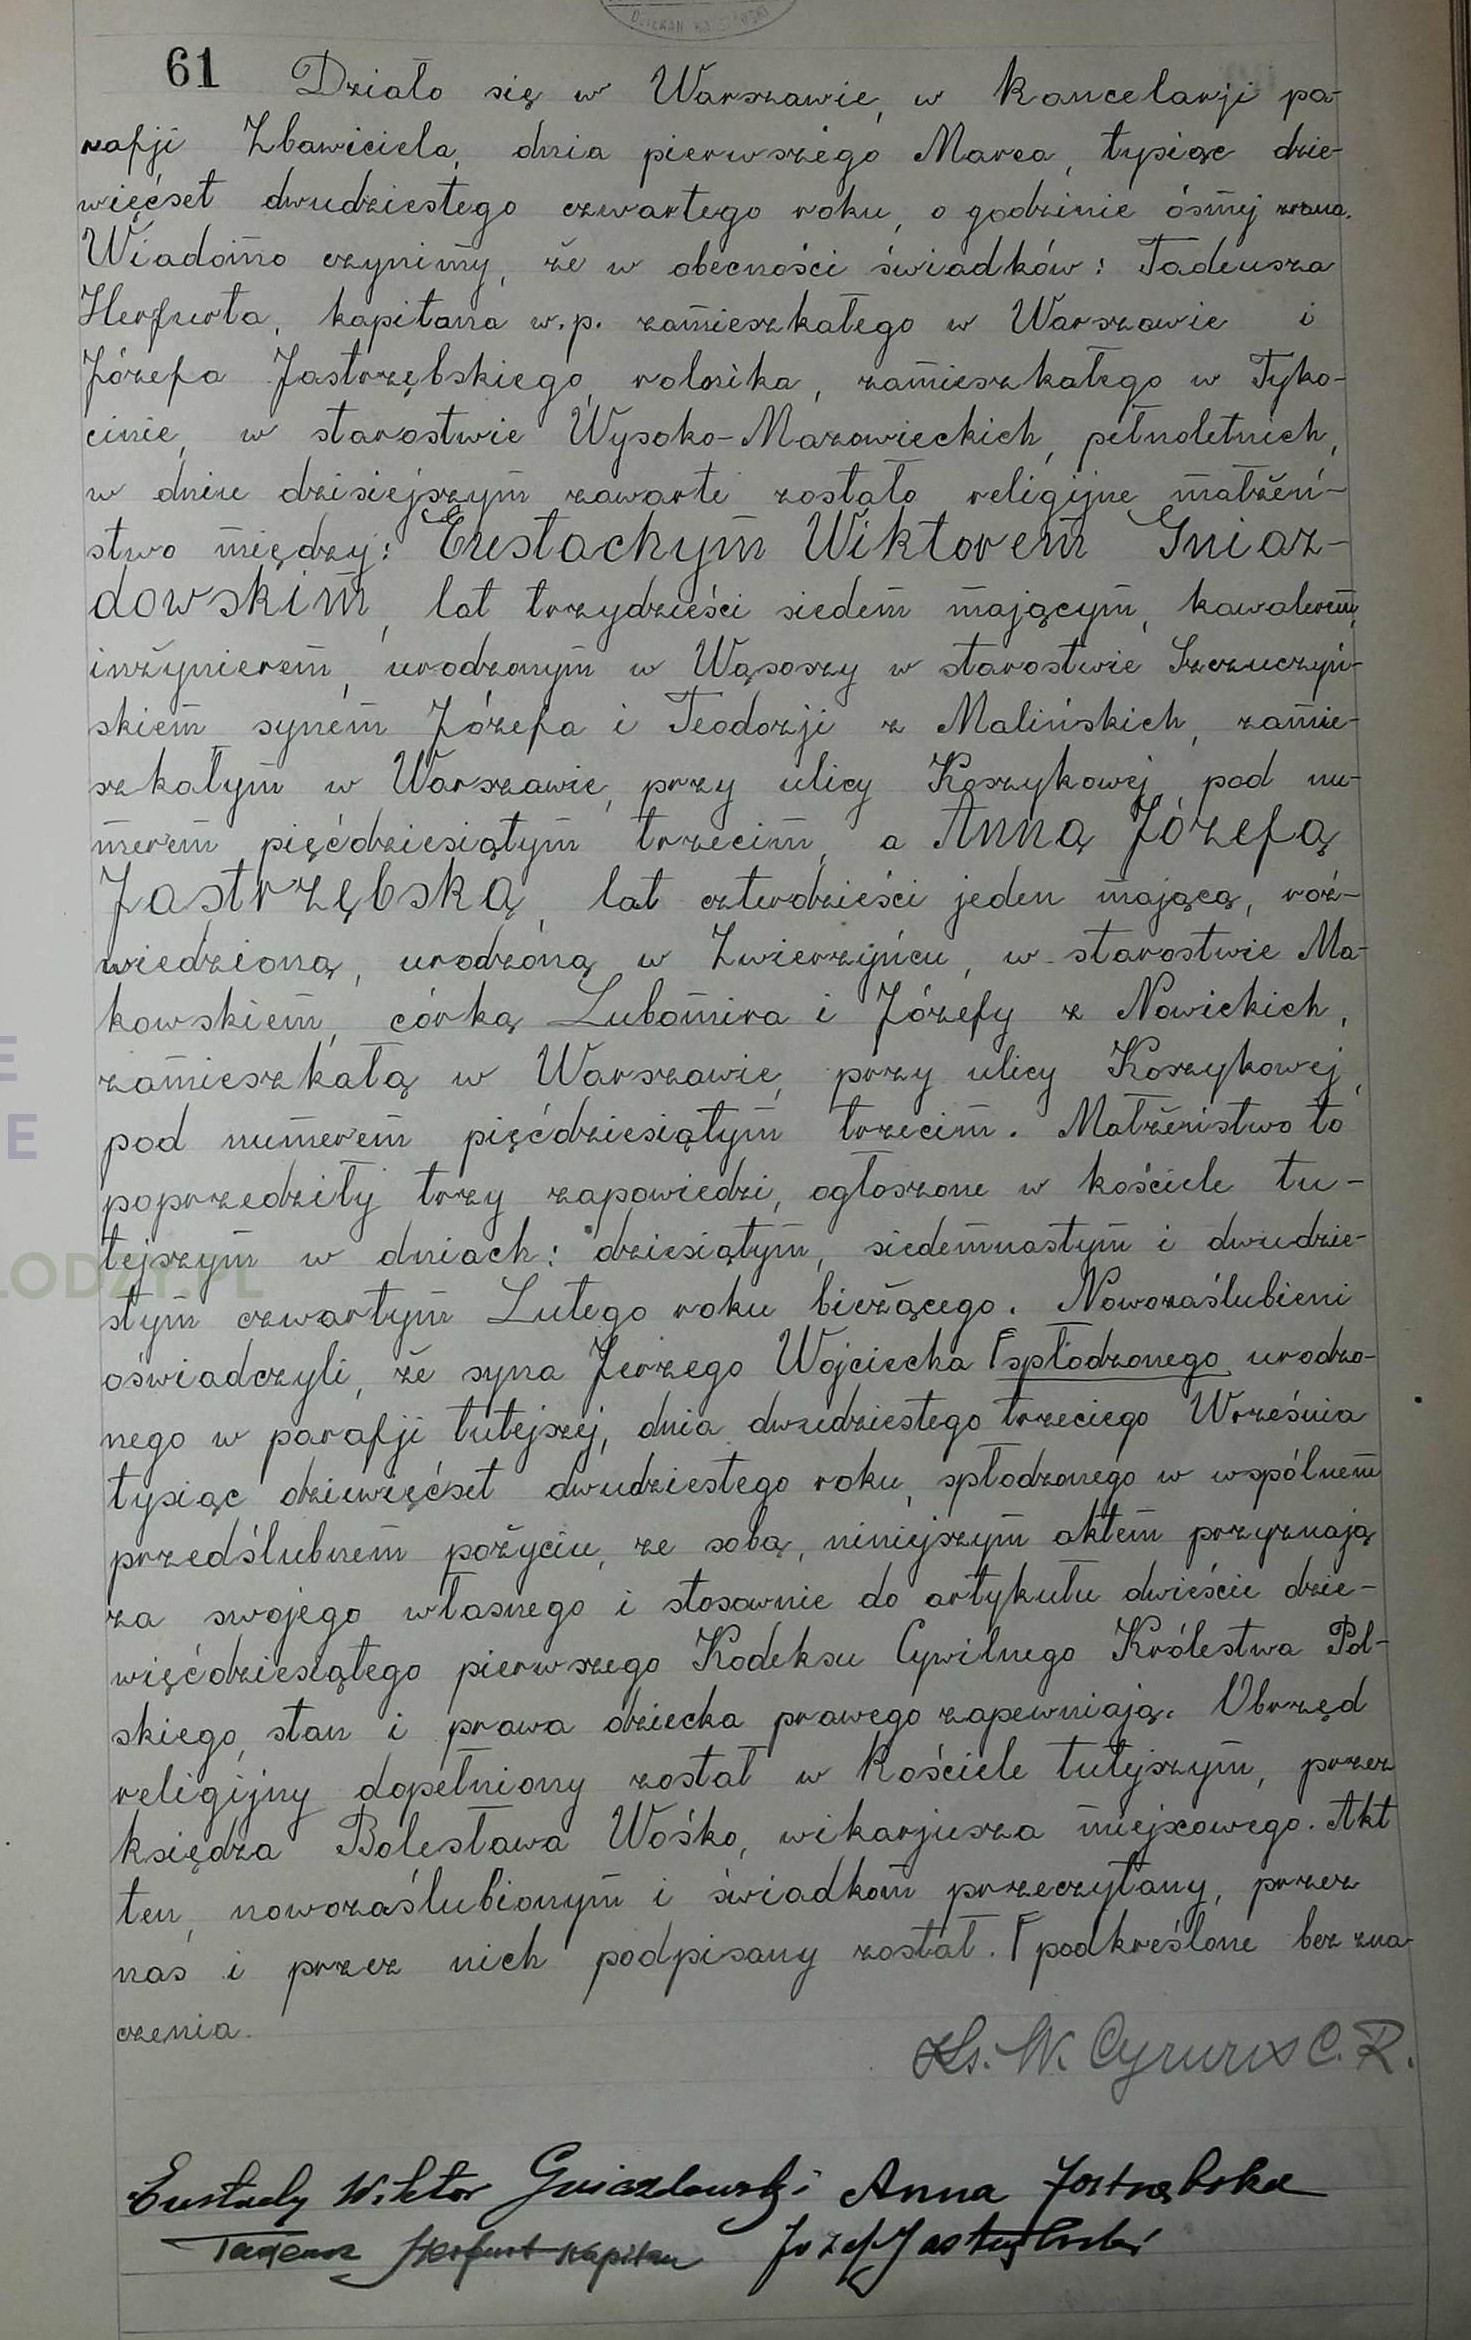 61 Działo się w Warszawie, w Kancelarji pa-
rafji Zbawiciela, dnia pierwszego Marca, tysiąc dzie-
więćset dwudziestego czwartego roku, o godzinie ósmej zrana.
Wiadomo czynimy, że w obecności świadków: Tadeusza
Herfurta, kapitana w.p. zamieszkałego w Warszawie i
Józefa Jastrzębskiego, rolnika, zamieszkałego w Tyko-
cinie, w starostwie Wysoko-Mazowieckich, pełnoletnich,
w dniu dzisiejszym zawarte zostało religijne małżeń-
stwo między: Eustachym Wiktorem Gniaz-
dowskim, lat trzydzieści siedem mającym, kawalerem,
inżynierem, urodzonym w Wąsoszy w starostwie Szczuczyń-
skiem synem Józefa i Teodozji z Malińskich, zamie-
szkałym w Warszawie, przy ulicy Koszykowej pod nu-
merem pięćdziesiątym trzecim, a Anną Józefą
Jastrzębską, lat czterdzieści jeden mającą, roz-
wiedzioną, urodzoną w Zwierzyńcu, w starostwie Ma-
kowskiem, córką Lubomira i Józefy z Nowickich,
zamieszkałą w Warszawie, przy ulicy Koszykowej,
pod numerem pięćdziesiątym trzecim. Małżeństwo to
poprzedziły trzy zapowiedzi, ogłoszone w kościele tu-
tejszym w dniach: dziesiątym, siedemnastym i dwudzie-
stym czwartym Lutego roku bieżącego. Nowozaślubieni
oświadczyli, że syna Jerzego Wojciecha Γspłodzonego urodzo-
nego w parafji tutejszej, dnia dwudziestego trzeciego Września
tysiąc dziewięćset dwudziestego roku, spłodzonego w wspólnem
przedślubnem pożyciu, ze sobą, niniejszym aktem przyznają
za swojego własnego i stosownie do artykułu dwieście dzie-
więćdziesiątego pierwszego Kodeksu Cywilnego Królestwa Pol-
skiego, stan i prawa dziecka prawego zapewniają. Obrzęd
religijny dopełniony został w Kościele tutejszym, przez
księdza Bolesława Wośko, wikarjusza miejscowego. Akt
ten, nowozaślubionym i świadkom przeczytany, przez
nas i przez nich podpisany został. Γ podkreślone bez zna-
czenia.
Ks. W. Cyrurxs C.R.
Eustachy Wiktor Gniazdowski Anna Jastrzębska
Tadeusz Herfurt kapitan Józef Jastrzębski
LODZI.PL